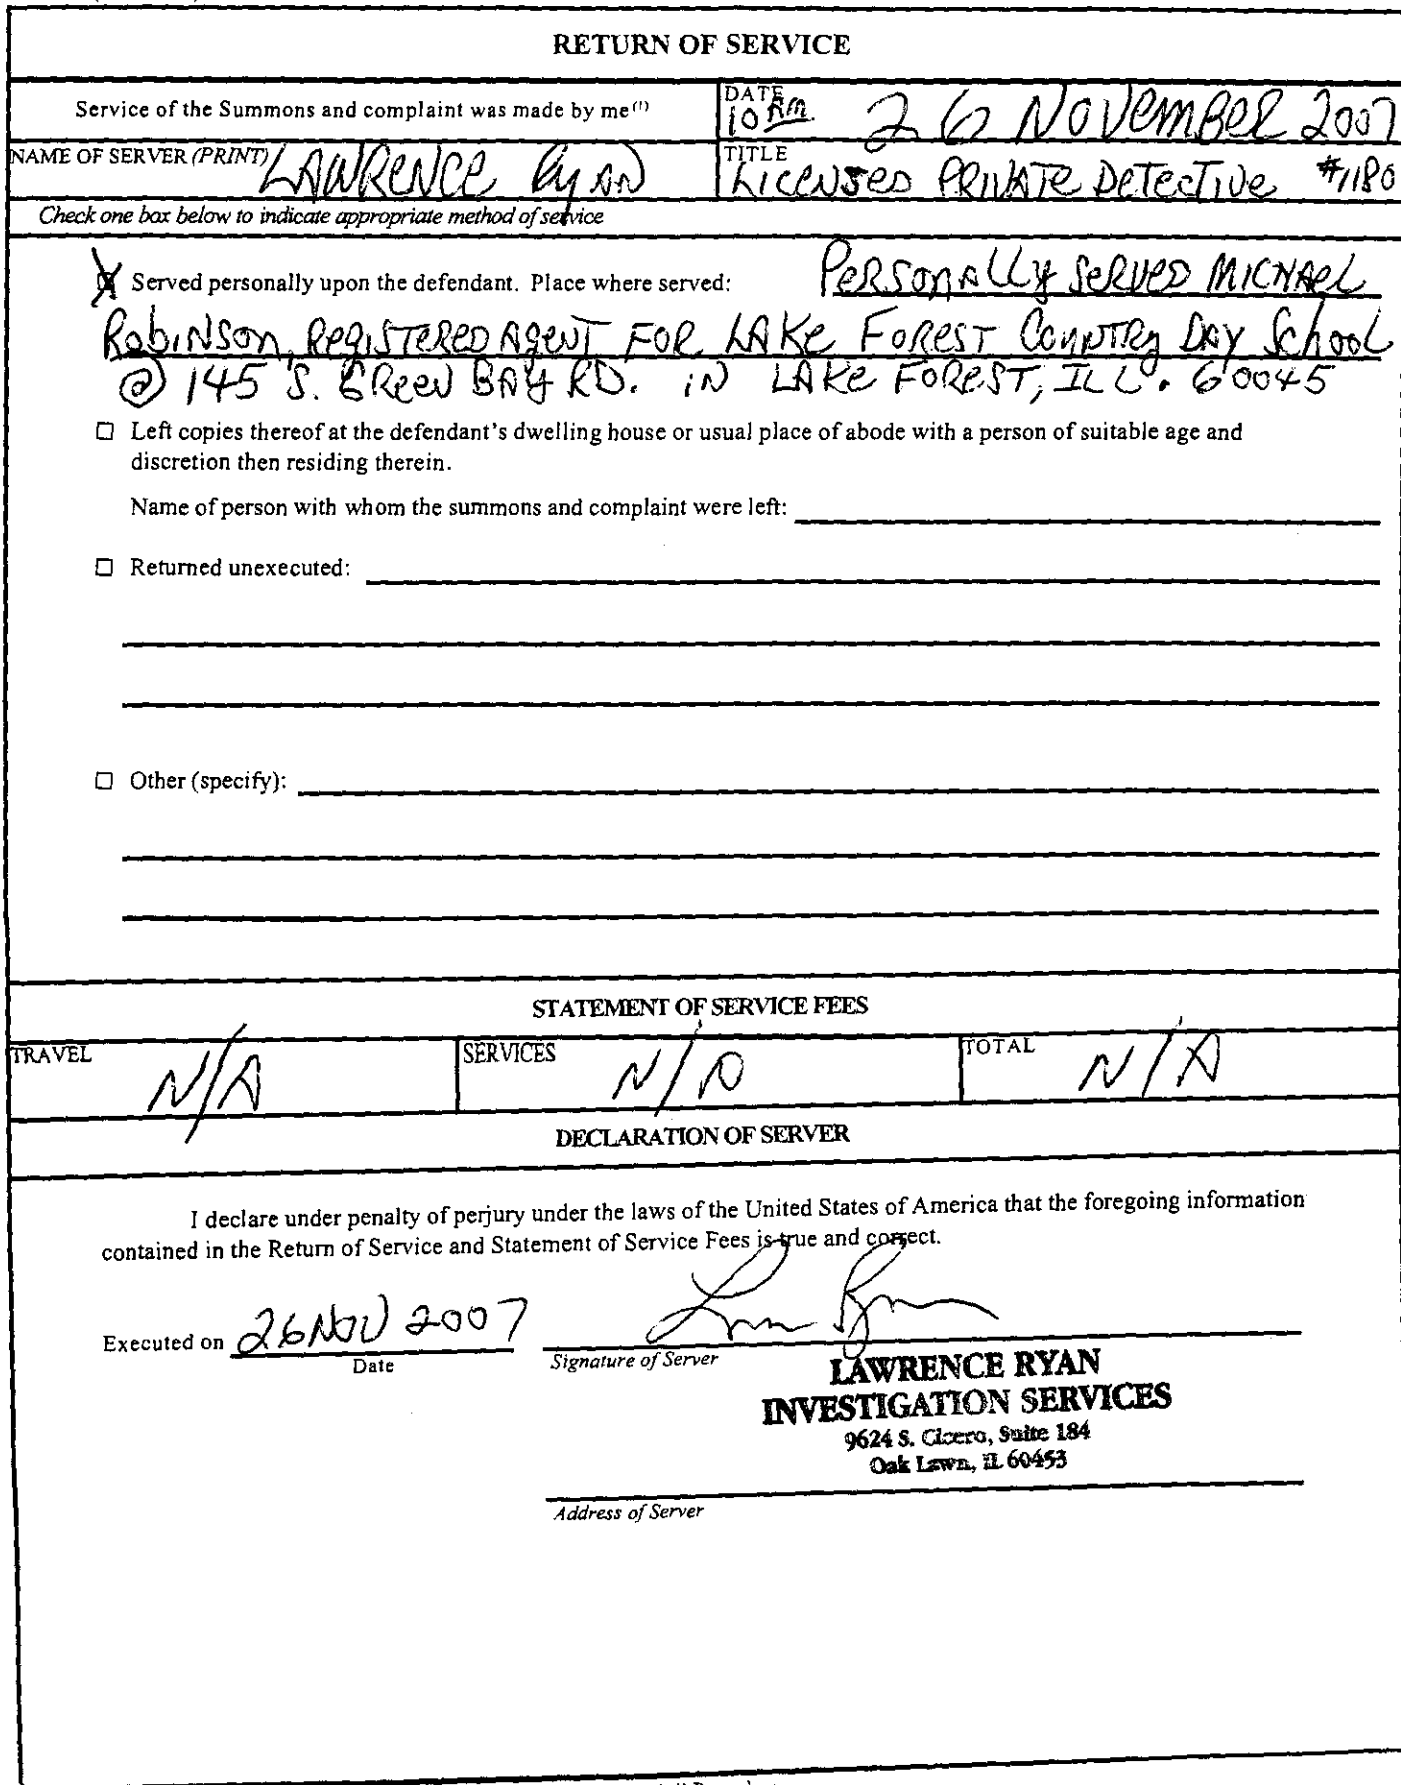 RETURN OF SERVICE
Service of the Summons and complaint was made by me(1)
DATE
10 AM 26 NOVEMBER 2007
NAME OF SERVER (PRINT) LAWRENCE RYAN
TITLE
LICENSED PRIVATE DETECTIVE #1180
Check one box below to indicate appropriate method of service
X Served personally upon the defendant. Place where served: PERSONALLY SERVED MICHAEL
ROBINSON, REGISTERED AGENT FOR LAKE FOREST COUNTRY DAY SCHOOL
@ 145 S. GREEN BAY RD. IN LAKE FOREST, ILL. 60045
☐ Left copies thereof at the defendant's dwelling house or usual place of abode with a person of suitable age and
discretion then residing therein.
Name of person with whom the summons and complaint were left:
☐ Returned unexecuted:
☐ Other (specify):
STATEMENT OF SERVICE FEES
TRAVEL N/A
SERVICES N/A
TOTAL N/A
DECLARATION OF SERVER
I declare under penalty of perjury under the laws of the United States of America that the foregoing information
contained in the Return of Service and Statement of Service Fees is true and correct.
Executed on 26 NOV 2007
Date
Signature of Server
LAWRENCE RYAN
INVESTIGATION SERVICES
9624 S. Cicero, Suite 184
Oak Lawn, IL 60453
Address of Server